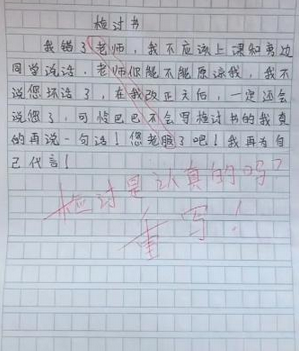 检讨书
我错了老师，我不应该上课和旁边
同学说话，老师你能不能原谅我，我不
说您坏话了，在我改正天后，一定还会
说您了，可惜巴巴不会写检讨书的我真
的再说一句话！您老服了吧！我再为自
己代言！
检讨是认真的吗？
重写！